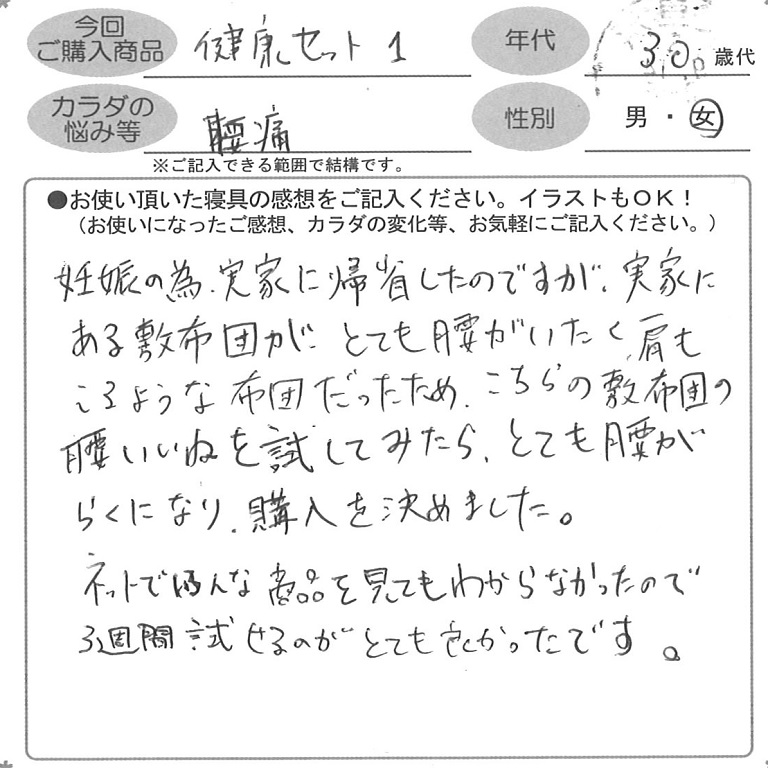 今回
ご購入商品
健康セット1
年代
30
歳代
カラダの
悩み等
腰痛
性別
男・女
※ご記入できる範囲で結構です。
●お使い頂いた寝具の感想をご記入ください。イラストもOK!
（お使いになったご感想、カラダの変化等、お気軽にご記入ください。）
妊娠の為、実家に帰省したのですが、実家に
ある敷布団がとても腰がいたく、肩も
こるような布団だったため、こちらの敷布団の
腰いいねを試してみたら、とても腰が
らくになり、購入を決めました。
ネットでほんな商品を見てもわからなかったので
3週間試せるのがとても良かったです。